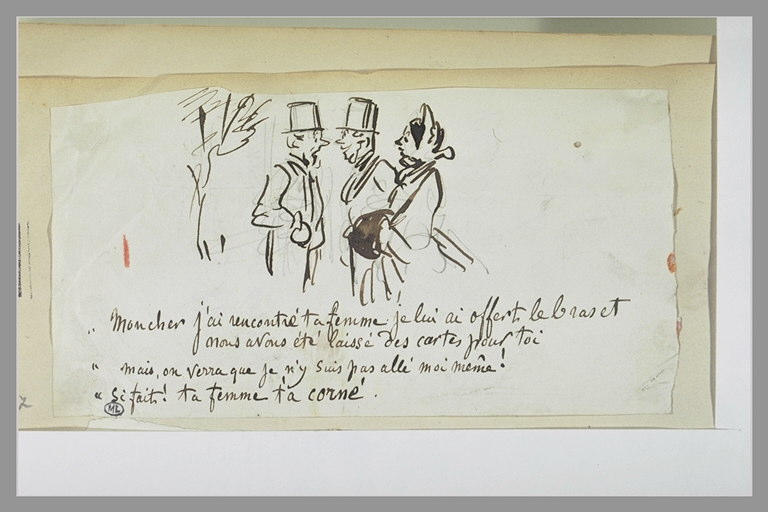 " Mon cher j'ai rencontré ta femme ! je lui ai offert le bras et
nous avons été laissé des cartes pour toi
" mais, on verra que je n'y suis pas allé moi même !
" Si fait ! ta femme t'a corné .
ML